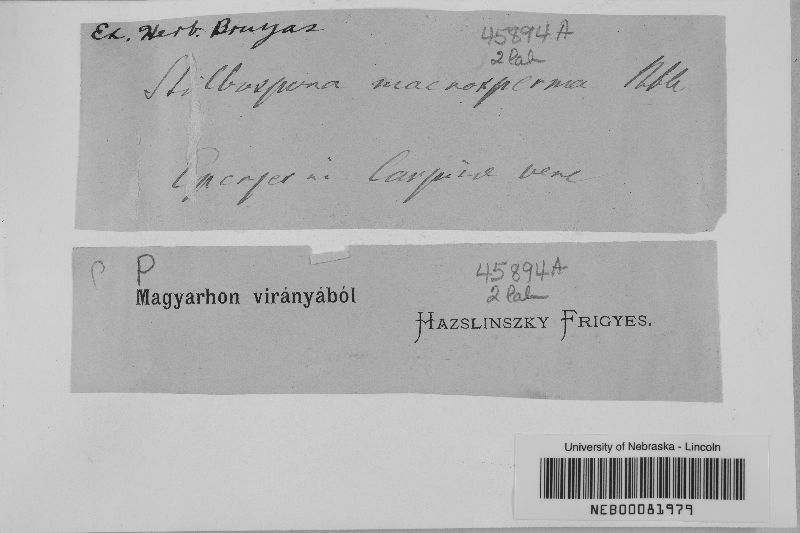 Ex. Herb. Bruyas
45894A
2 Lab
Stilbospora macrosperma
Eperjes in Carpino vere
P P
45894A
2 Lab
Magyarhon virányából
HAZSLINSZKY FRIGYES.
University of Nebraska - Lincoln
NEB00081979